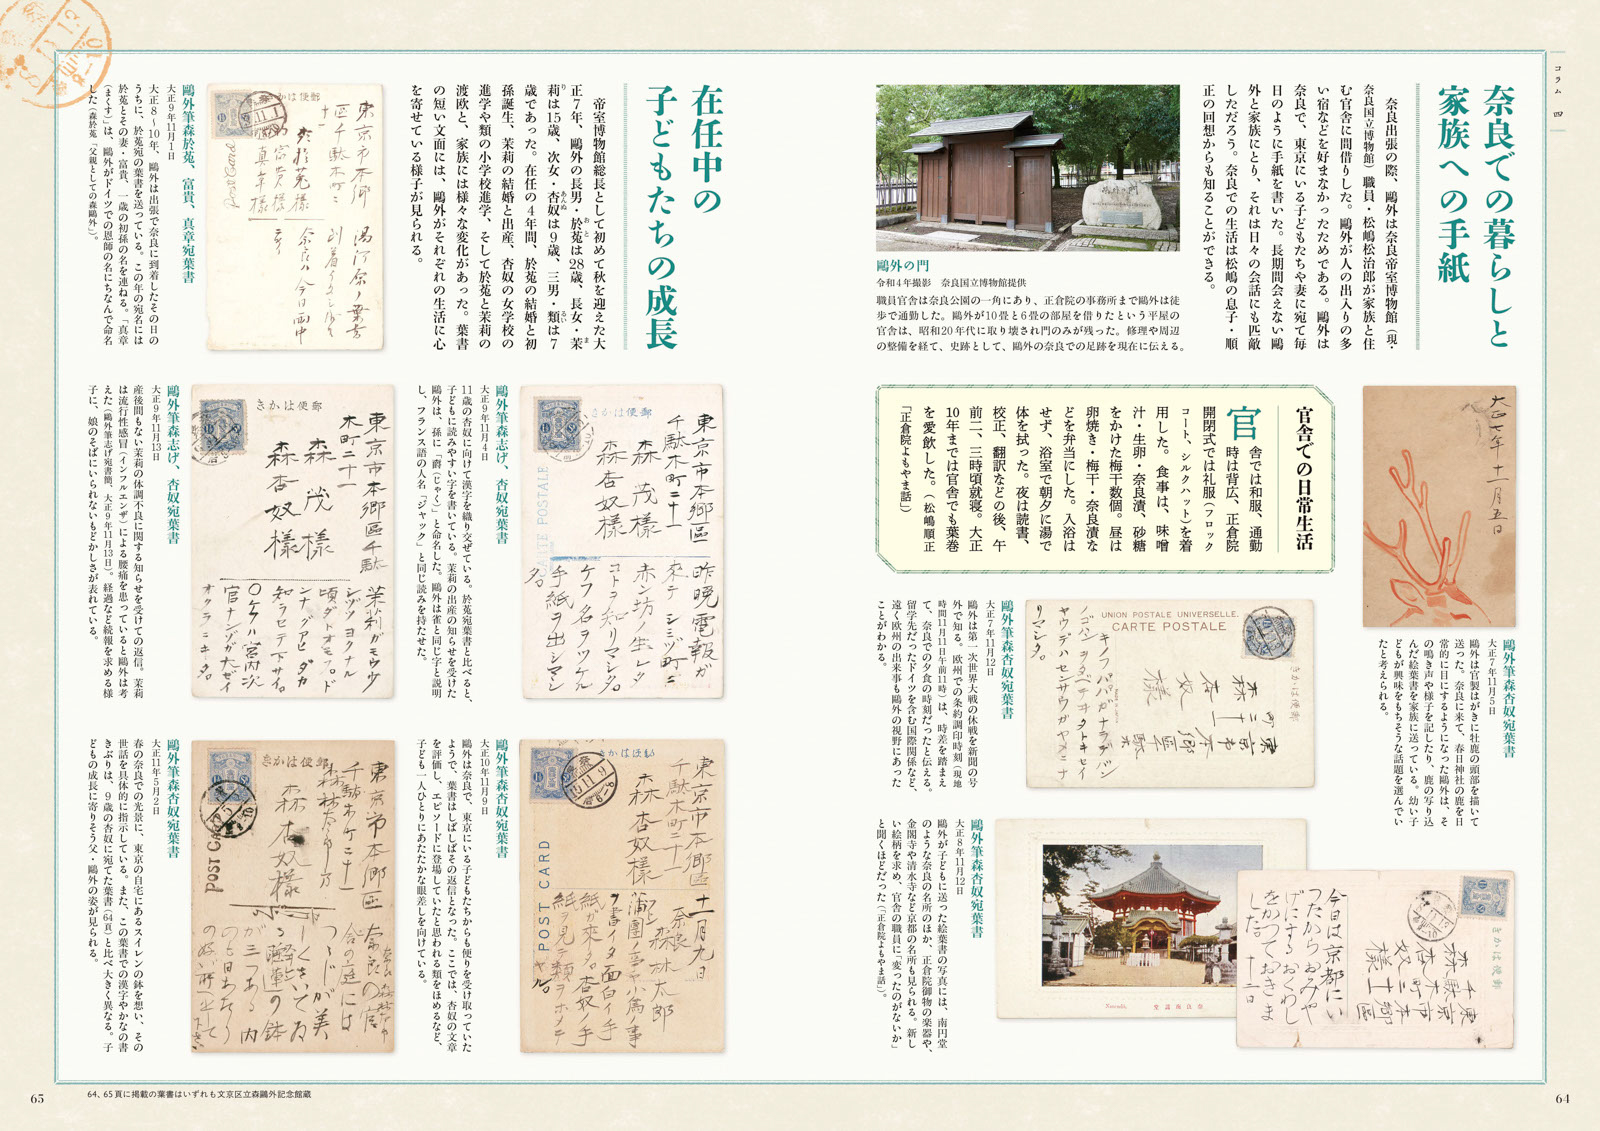 コラム 四
奈良での暮らしと
家族への手紙
奈良出張の際、鷗外は奈良帝室博物館（現・
奈良国立博物館）職員・松嶋松治郎が家族と住
む官舎に間借りした。鷗外が人の出入りの多
い宿などを好まなかったためである。鷗外は
奈良で、東京にいる子どもたちや妻に宛て毎
日のように手紙を書いた。長期間会えない鷗
外と家族にとり、それは日々の会話にも匹敵
しただろう。奈良での生活は松嶋の息子・順
正の回想からも知ることができる。
鷗外の門
令和4年撮影 奈良国立博物館提供
職員官舎は奈良公園の一角にあり、正倉院の事務所まで鷗外は徒
歩で通勤した。鷗外が10畳と6畳の部屋を借りたという平屋の
官舎は、昭和20年代に取り壊され門のみが残った。修理や周辺
の整備を経て、史跡として、鷗外の奈良での足跡を現在に伝える。
大正七年十一月五日
鷗外筆森杏奴宛葉書
大正7年11月5日
鷗外は官製はがきに牡鹿の頭部を描いて
送った。奈良に来て、春日神社の鹿を日
常的に目にするようになった鷗外は、そ
の鳴き声や様子を記したり、鹿の写り込
んだ絵葉書を家族に送っている。幼い子
どもが興味をもちそうな話題を選んでい
たと考えられる。
官舎での日常生活
官舎では和服、通勤
時は背広、正倉院
開閉式では礼服（フロック
コート、シルクハット）を着
用した。食事は、味噌
汁・生卵・奈良漬、砂糖
をかけた梅干数個。昼は
卵焼き・梅干・奈良漬な
どを弁当にした。入浴は
せず、浴室で朝夕に湯で
体を拭った。夜は読書、
校正、翻訳などの後、午
前二、三時頃就寝。大正
10年までは官舎でも葉巻
を愛飲した。（松嶋順正
「正倉院よもやま話」）
UNION POSTALE UNIVERSELLE.
CARTE POSTALE
きかは便郵
鷗外筆森杏奴宛葉書
大正7年11月12日
鷗外は第一次世界大戦の休戦を新聞の号
外で知る。欧州での条約調印時刻（現地
時間11月11日午前11時）は、時差を踏まえ
て、奈良での夕食の時刻だったと伝える。
留学先だったドイツを含む国際関係など、
遠く欧州の出来事も鷗外の視野にあった
ことがわかる。
きかは便郵
東京市本郷區
千駄木町二十一
森杏奴様
今日は京都にい
つたからおみや
げにするおくわし
をかつておきま
した。十二日
鷗外筆森杏奴宛葉書
大正8年11月12日
鷗外が子どもに送った絵葉書の写真には、南円堂
のような奈良の名所のほか、正倉院御物の楽器や、
金閣寺や清水寺など京都の名所も見られる。新し
い絵柄を求め、官舎の職員に「変ったのがないか」
と聞くほどだった（「正倉院よもやま話」）。
64
在任中の
子どもたちの成長
帝室博物館総長として初めて秋を迎えた大
正7年、鷗外の長男・於菟は28歳、長女・茉
莉は15歳、次女・杏奴は9歳、三男・類は7
歳であった。在任の4年間、於菟の結婚と初
孫誕生、茉莉の結婚と出産、杏奴の女学校の
進学や類の小学校進学、そして於菟と茉莉の
渡欧と、家族には様々な変化があった。葉書
の短い文面には、鷗外がそれぞれの生活に心
を寄せている様子が見られる。
きかは便郵
鷗外筆森於菟、富貴、真章宛葉書
大正9年11月1日
大正8〜10年、鷗外は出張で奈良に到着したその日の
うちに、於菟宛の葉書を送っている。この年の宛名には
於菟とその妻・富貴、一歳の初孫の名を連ねる。「真章
（まくす）」は、鷗外がドイツでの恩師の名にちなんで命名
した（森於菟「父親としての森鷗外」）。
きかは便郵
CARTE POSTALE
東京市本郷區
千駄木町二十一
森茂様
森杏奴様
昨晩電報ガ
来テシミヅ町ニ
赤ン坊ノ生レタ
コトヲ知リマシタ。
ケフ名ヲツケル
手紙ヲ出シマシ
タ。
鷗外筆森志げ、杏奴宛葉書
大正9年11月4日
11歳の杏奴に向けて漢字を織り交ぜている。於菟宛葉書と比べると、
子どもに読みやすい字を書いている。茉莉の出産の知らせを受けた
鷗外は、孫に「爵（じゃく）」と命名した。鷗外は雀と同じ字と説明
し、フランス語の人名「ジャック」と同じ読みを持たせた。
きかは便郵
東京市本郷區千駄
木町二十一
森茂様
森杏奴様
鷗外筆森志げ、杏奴宛葉書
大正9年11月13日
産後間もない茉莉の体調不良に関する知らせを受けての返信。茉莉
は流行性感冒（インフルエンザ）による腰痛を患っていると鷗外は考
えた（鷗外筆志げ宛書簡、大正9年11月13日）。経過など続報を求める様
子に、娘のそばにいられないもどかしさが表れている。
きかは便郵
POST CARD
東京市本郷區
千駄木町二十一
森杏奴様
十一月九日
奈良
森林太郎
鷗外筆森杏奴宛葉書
大正10年11月9日
鷗外は奈良で、東京にいる子どもたちからも便りを受け取っていた
ようで、葉書はしばしばその返信となった。ここでは、杏奴の文章
を評価し、エピソードに登場していたと思われる類をほめるなど、
子ども一人ひとりにあたたかな眼差しを向けている。
きかは便郵
POST CARD
東京市本郷區
森杏奴様
鷗外筆森杏奴宛葉書
大正11年5月2日
春の奈良での光景に、東京の自宅にあるスイレンの鉢を想い、その
世話を具体的に指示している。また、この葉書での漢字やかなの書
きぶりは、9歳の杏奴に宛てた葉書（64頁）と比べ大きく異なる。子
どもの成長に寄りそう父・鷗外の姿が見られる。
64、65頁に掲載の葉書はいずれも文京区立森鷗外記念館蔵
65